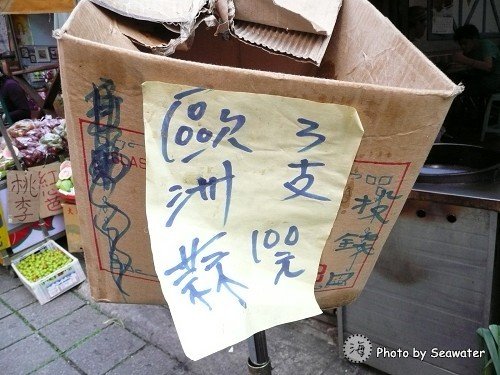 歐洲蒜
3支
100元
投錢
口
紅
桃李
海
Photo by Seawater